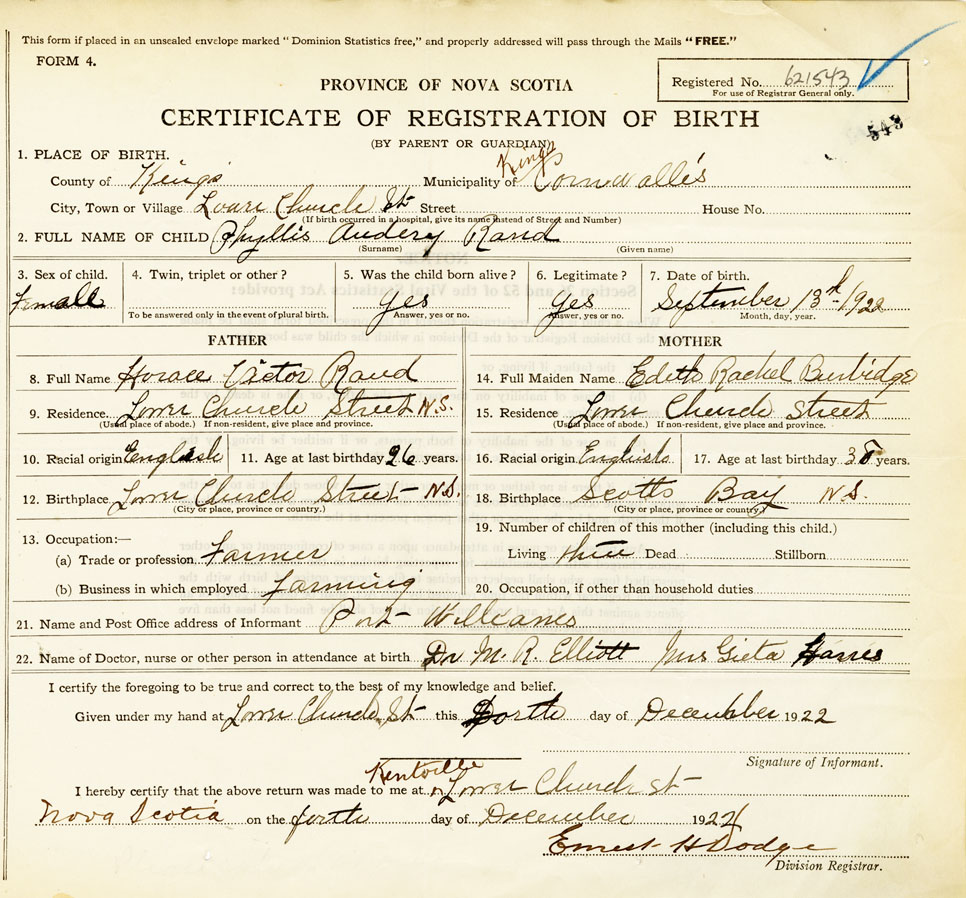 This form if placed in an unsealed envelope marked "Dominion Statistics free," and properly addressed will pass through the Mails "FREE."
FORM 4.
PROVINCE OF NOVA SCOTIA
Registered No. 621543
For use of Registrar General only.
CERTIFICATE OF REGISTRATION OF BIRTH
543
(BY PARENT OR GUARDIAN)
1. PLACE OF BIRTH.
Kings
County of Kings Municipality of Cornwallis
City, Town or Village Church St Street House No.
(If birth occurred in a hospital, give its name instead of Street and Number)
2. FULL NAME OF CHILD Phyllis Audery Rand
(Surname) (Given name)
3. Sex of child. 4. Twin, triplet or other? 5. Was the child born alive? 6. Legitimate? 7. Date of birth.
Female yes yes September 13th 1922
To be answered only in the event of plural birth. Answer, yes or no. Answer, yes or no. Month, day, year.
FATHER MOTHER
8. Full Name Horace Victor Rand 14. Full Maiden Name Edith Rachel Burbidge
9. Residence. Lower Church Street N.S. 15. Residence Lower Church Street
(Usual place of abode.) If non-resident, give place and province. (Usual place of abode.) If non-resident, give place and province.
10. Racial origin English 11. Age at last birthday 26 years. 16. Racial origin English 17. Age at last birthday years.
12. Birthplace Lower Church Street N.S. 18. Birthplace Scotts Bay N.S.
(City or place, province or country.) (City or place, province or country.)
13. Occupation:— 19. Number of children of this mother (including this child.)
(a) Trade or profession Farmer Living three Dead Stillborn
(b) Business in which employed farming 20. Occupation, if other than household duties
21. Name and Post Office address of Informant Port Williams
22. Name of Doctor, nurse or other person in attendance at birth Dr M. R. Elliott Mrs Harris
I certify the foregoing to be true and correct to the best of my knowledge and belief.
Given under my hand at Lower Church St this day of December 1922
Signature of Informant.
Kentville
I hereby certify that the above return was made to me at Lower Church st
Nova Scotia on the forth day of December 1922
Ernest H Dodge
Division Registrar.